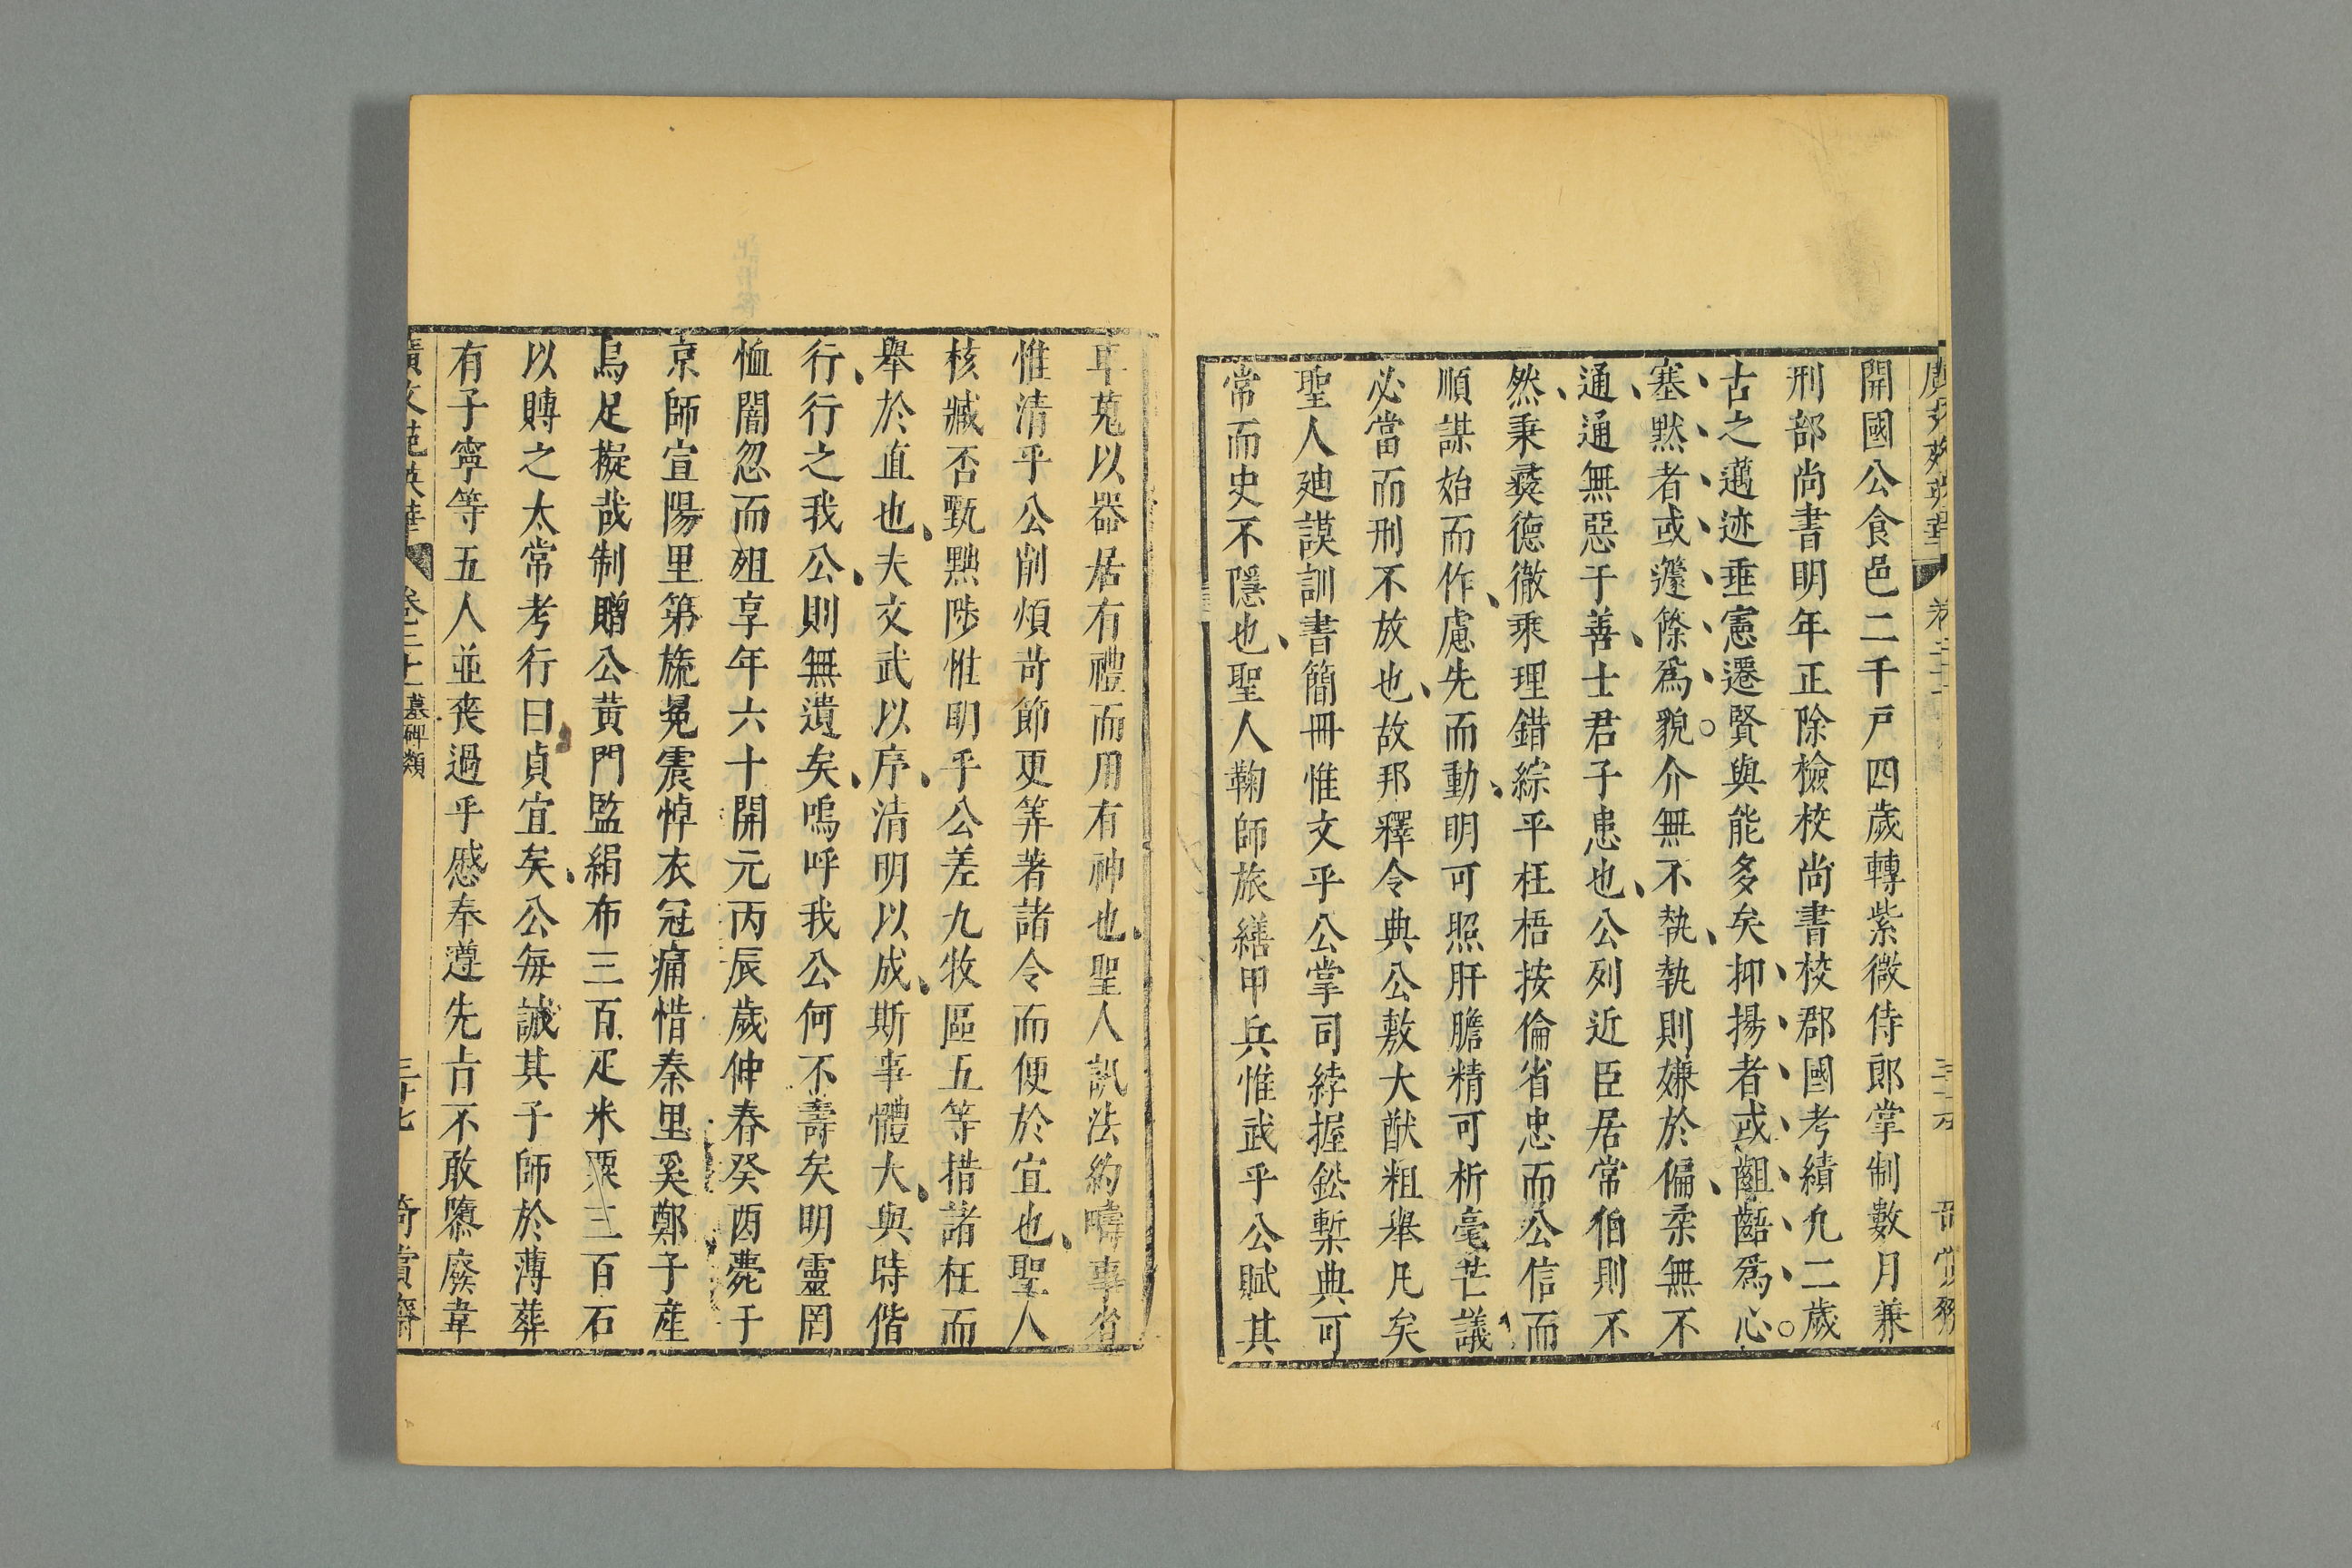 開國公食邑二千戸四歲轉紫微侍郎掌制數月兼
刑部尚書明年正除檢校尚書校郡國考績凢二歲
古之邁迹垂憲遷賢與能多矣抑揚者或齟齬爲心
塞默者或籧篨爲貌介無不執執則嫌於偏柔無不
通通無惡于善士君子患也公列近臣居常伯則不
然秉彛德徹乘理錯綜平枉梧按倫省忠而公信而
順謀始而作慮先而動明可照肝膽精可析毫芒議
必當而刑不放也故邦釋令典公敷大猷粗舉凡矣
聖人廸謨訓書簡冊惟文乎公掌司綍握鈆槧典可
常而史不隱也聖人鞠師旅繕甲兵惟武乎公賦其
車蒐以器居有禮而用有神也聖人訊法約疇事省
惟清乎公削煩苛節更筭著諸令而便於宜也聖人
核臧否甄黜陟惟明乎公差九牧區五等措諸枉而
舉於直也夫文武以序清明以成斯事體大與時偕
行行之我公則無遺矣嗚呼我公何不壽矣明靈罔
恤闇忽而殂享年六十開元丙辰歲仲春癸酉薨于
京師宣陽里第旒冕震悼衣冠痛惜秦里奚鄭子産
烏足擬哉制贈公黃門監絹布三百疋米粟三百石
以賻之太常考行曰貞宜矣公每誡其子師於薄葬
有子寧等五人並喪過乎慼奉遵先吉不敢隳廢韋
廣文苑英華 卷二十 墓碑類 三十七 奇賞齋